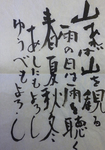 山あれば山を観る
雨の日は雨を聴く
春夏秋冬
あしたもよろし
ゆうべもよろし